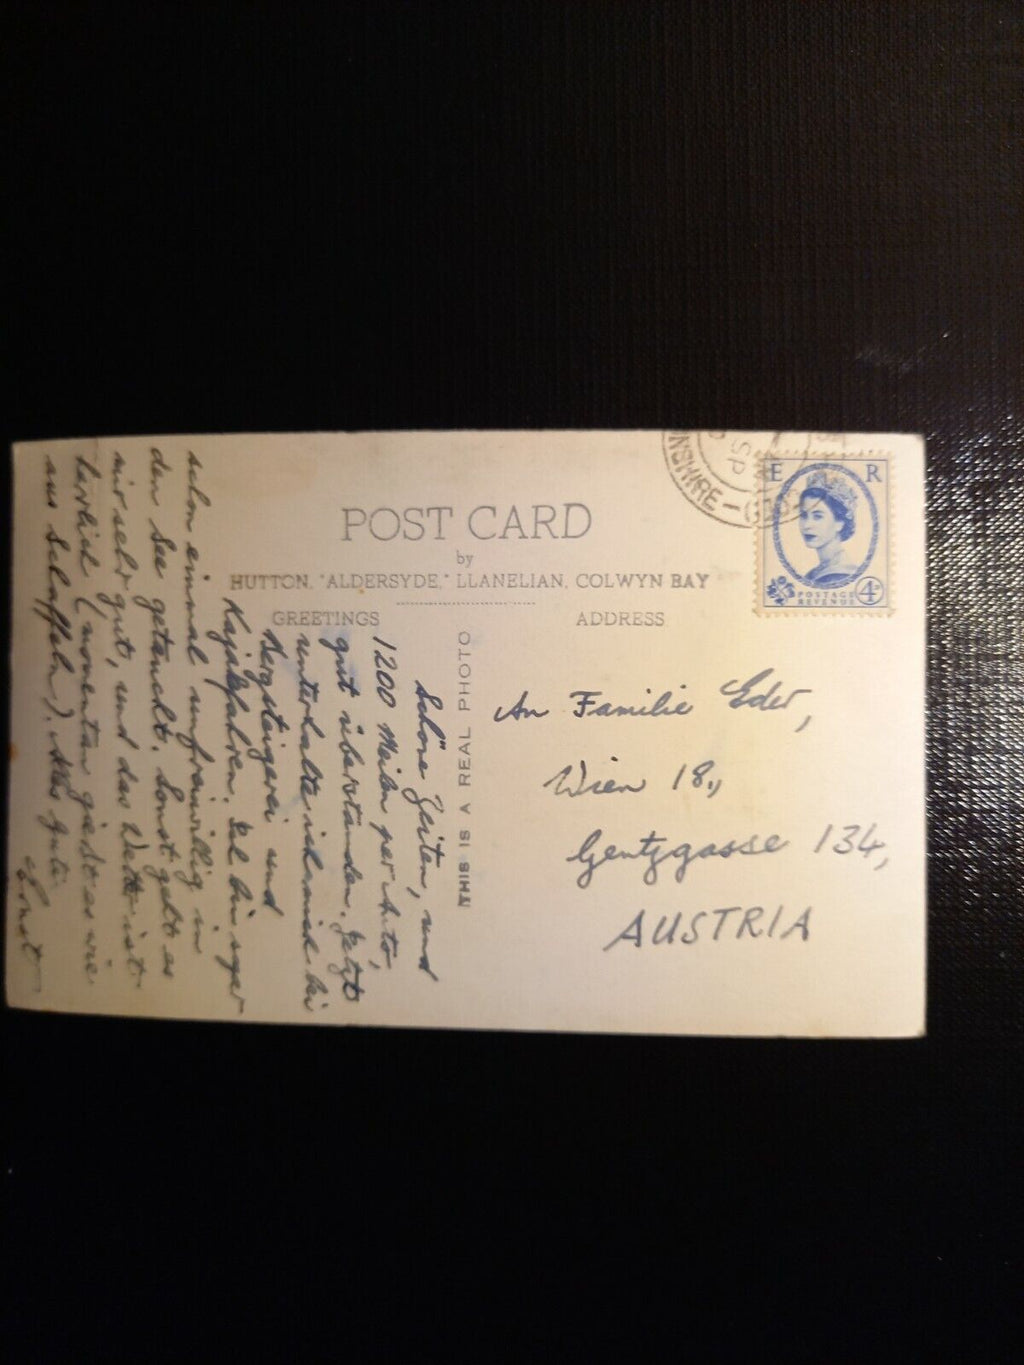 POST CARD
by
HUTTON, "ALDERSYDE," LLANELIAN, COLWYN BAY
GREETINGS
ADDRESS
THIS IS A REAL PHOTO
Schöne Zeiten, und
1200 Meilen per Auto
gut überstanden. Jetzt
unterhalte ich mich bei
Bergsteigerei und
Kajakfahren. Bin sogar
schon einmal unfreiwillig in
den See getaucht. Sonst geht es
mir sehr gut, und das Wetter ist
herrlich (momentan giesst es wie
aus Schaffeln). Alles Gute
An Familie Eder,
Wien 18.,
Gentzgasse 134,
AUSTRIA
E R
POSTAGE
REVENUE
4D
NSHIRE
SP